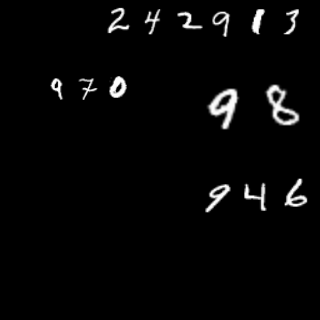 242913
970
98
946